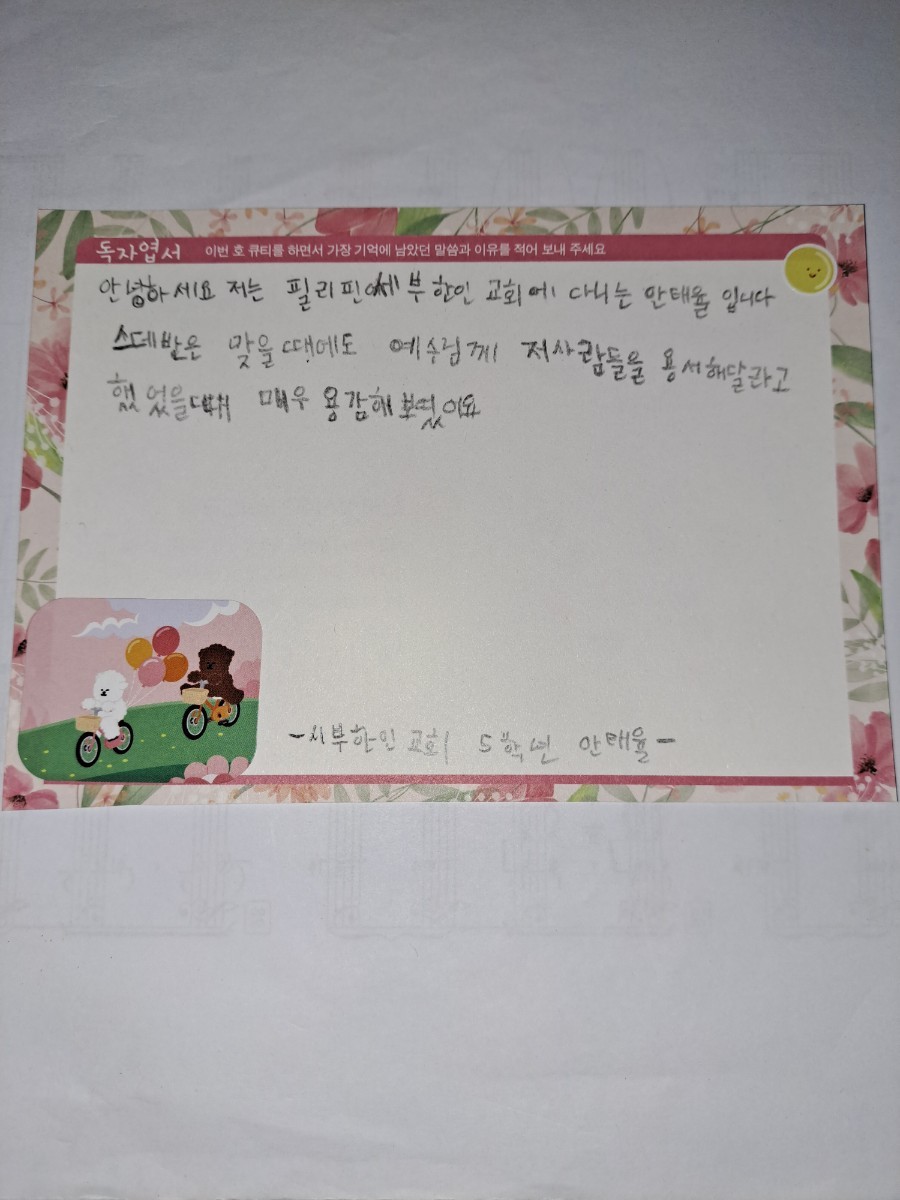 독자엽서 이번 호 큐티를 하면서 가장 기억에 남았던 말씀과 이유를 적어 보내 주세요
안녕하세요 저는 필리핀 세부 한인 교회에 다니는 안태율 입니다
스데반은 맞을 때에도 예수님께 저사람들을 용서해달라고
했었을때 매우 용감해 보였어요
-시부한인 교회 5학년 안태율-